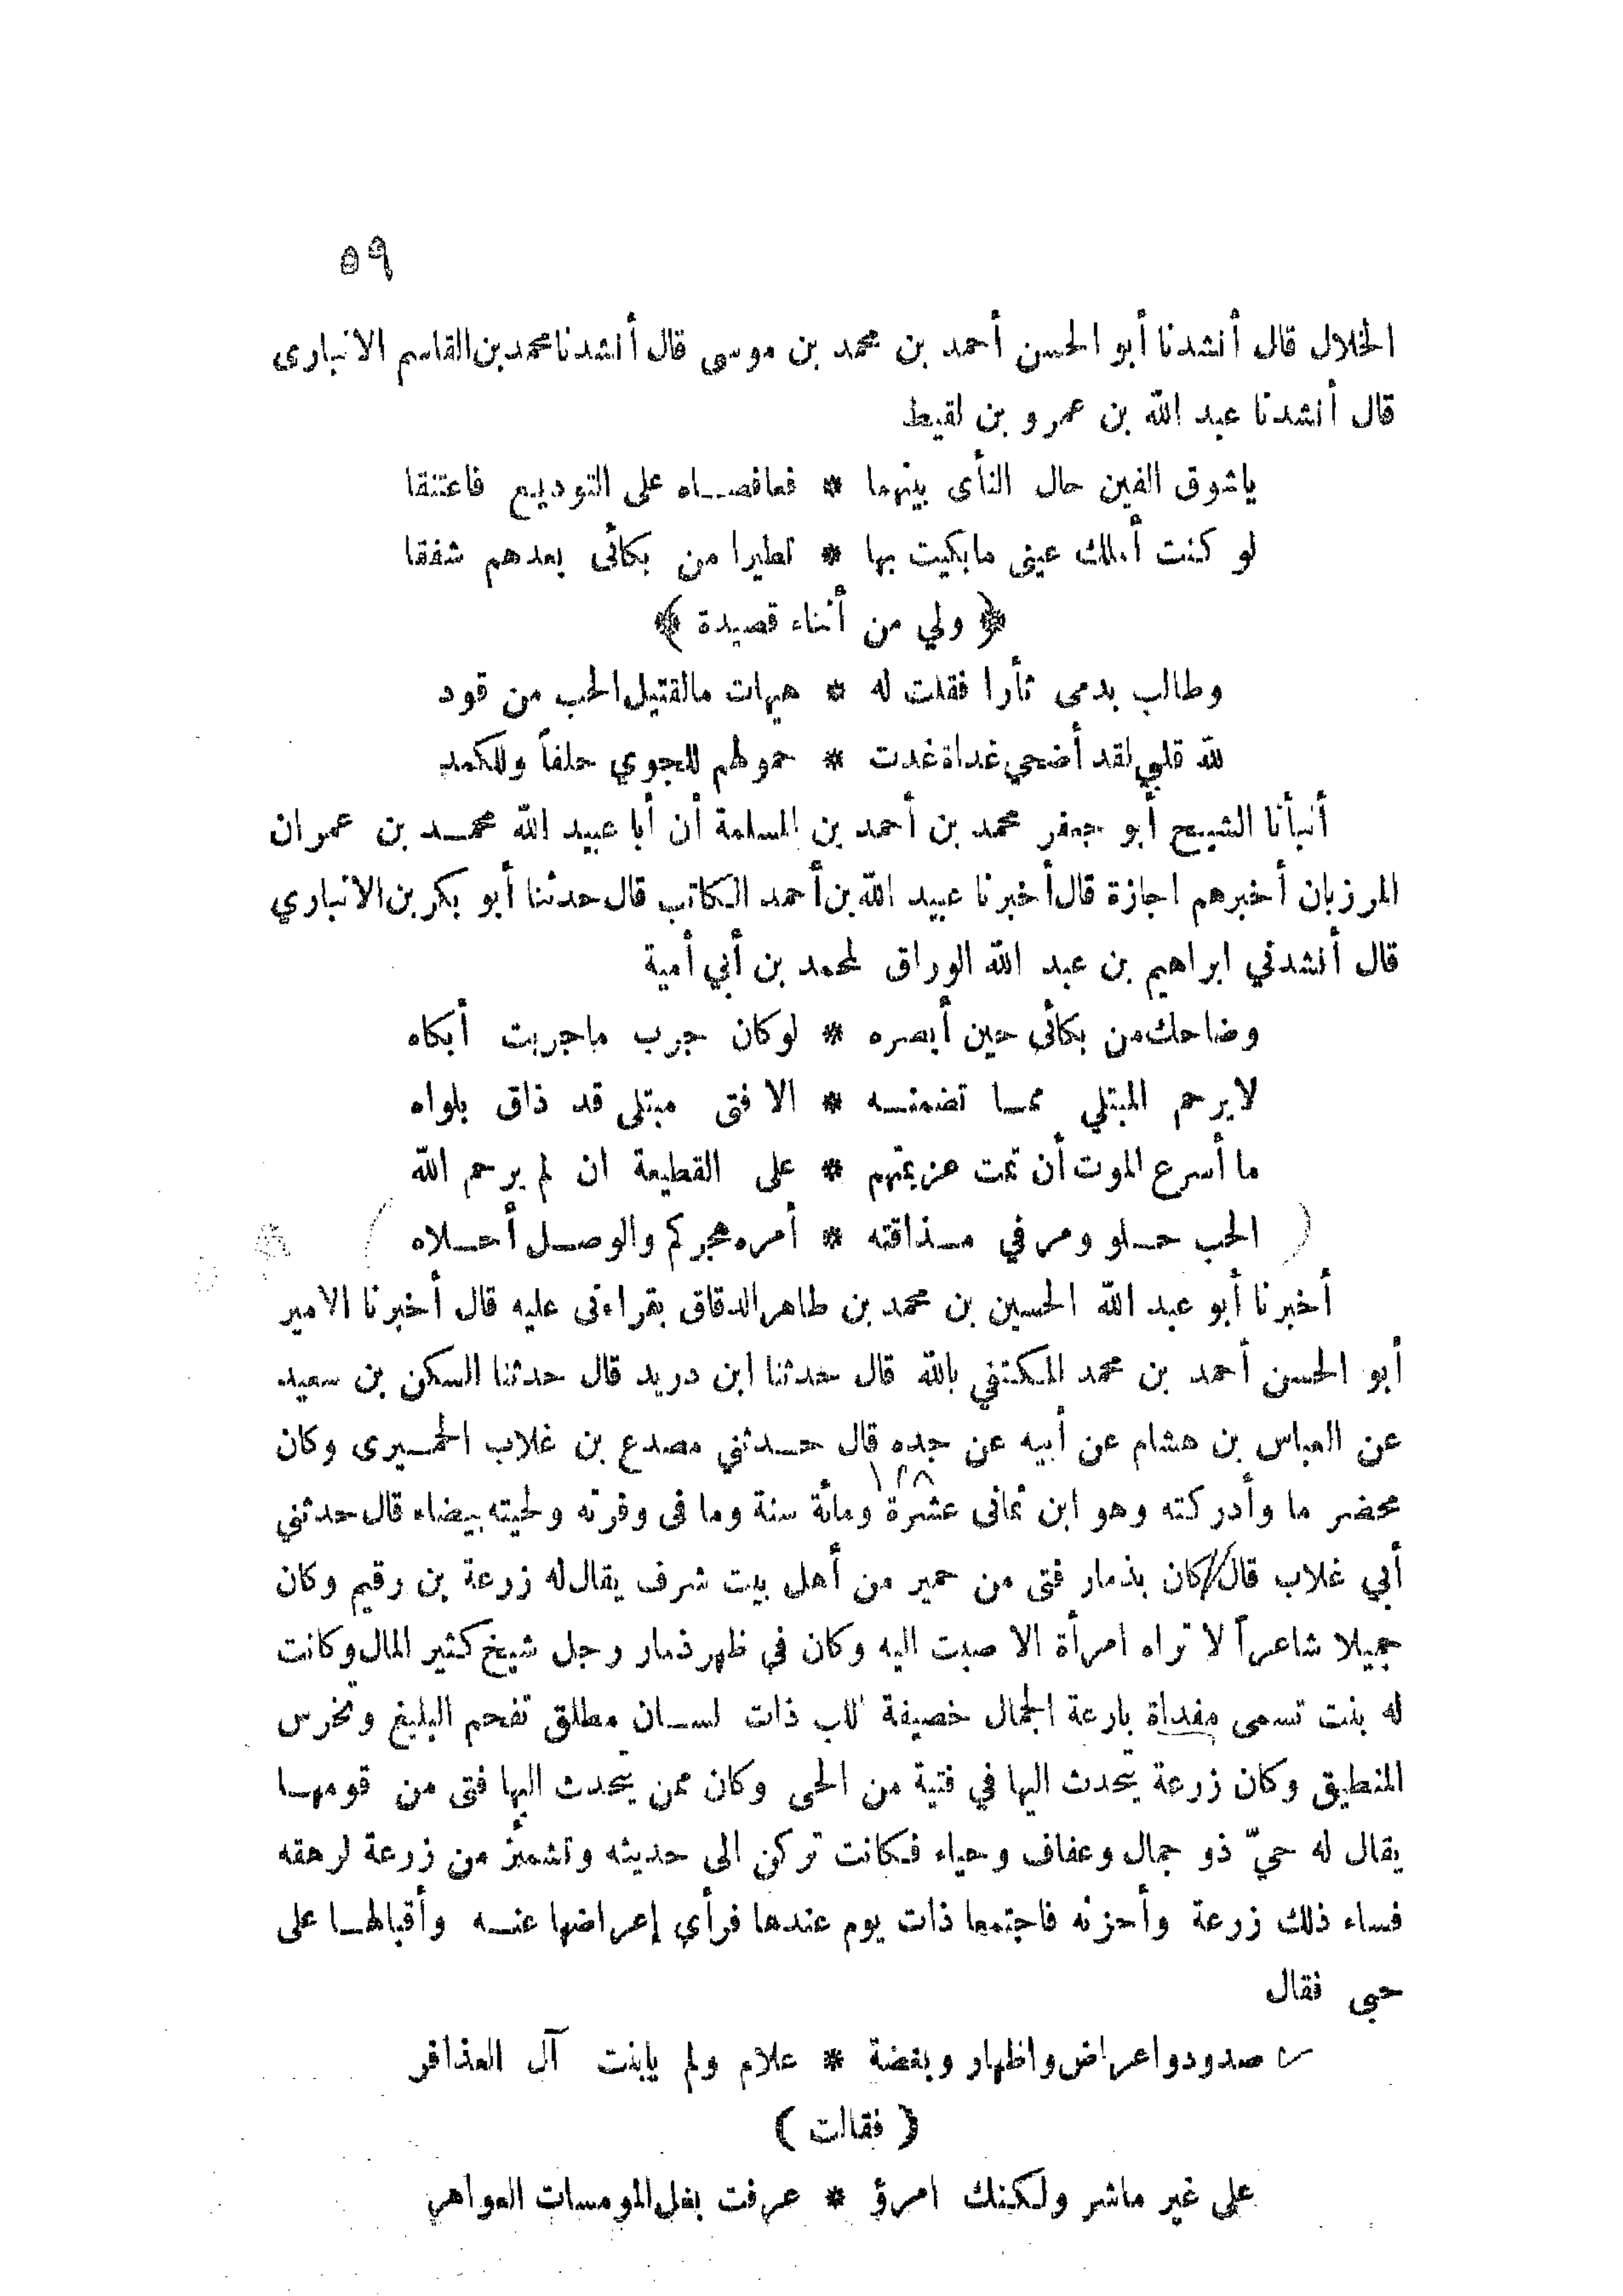 ٥٩
الخلال قال أنشدنا أبو الحسن أحمد بن محمد بن موسى قال أنشدنا محمد بن القاسم الانبارى
قال أنشدنا عبد الله بن عمرو بن لقيط
ياشوق الفين حال النأى بينهما * فعافصاه على التوديع فاعتنقا
لو كنت أملك عينى مابكيت بها * تطيرا من بكائى بعدهم شفقا
﴿ ولي من أثناء قصيدة ﴾
وطالب بدمى ثأرا فقلت له * هيهات مالقتيل الحب من قود
لله قلبي لقد أضحي غداة غدت * حمولهم للجوي حلفاً وللكمد
أنبأنا الشيخ أبو جعفر محمد بن أحمد بن المسلمة أن أبا عبيد الله محمد بن عمران
المرزبان أخبرهم اجازة قال أخبرنا عبيد الله بن أحمد الكاتب قال حدثنا أبو بكر بن الانباري
قال أنشدني ابراهيم بن عبد الله الوراق لمحمد بن أبي أمية
وضاحك من بكائى حين أبصره * لو كان جرب ماجربت أبكاه
لايرحم المبتلي مما تضمنه * الا فتى مبتلى قد ذاق بلواه
ما أسرع الموت أن تمت عزيمتهم * على القطيعة ان لم يرحم الله
( الحب حلو ومر في مذاقته * أمره هجركم والوصل أحلاه )
أخبرنا أبو عبد الله الحسين بن محمد بن طاهر الدقاق بقراءتى عليه قال أخبرنا الامير
أبو الحسن أحمد بن محمد المكتفي بالله قال حدثنا ابن دريد قال حدثنا السكن بن سعيد
عن العباس بن هشام عن أبيه عن جده قال حدثني مصدع بن غلاب الحميرى وكان
١٢٨
مخضر ما وأدركته وهو ابن ثمانى عشرة ومائة سنة وما فى وفرته ولحيته بيضاء قال حدثني
أبي غلاب قال // كان بذمار فتى من حمير من أهل بيت شرف يقال له زرعة بن رقيم وكان
جميلا شاعراً لا تراه امرأة الا صبت اليه وكان في ظهر ذمار رجل شيخ كثير المال وكانت
له بنت تسمى مفداة بارعة الجمال خصيفة للب ذات لسان مطلق تفحم البليغ وتخرس
المنطيق وكان زرعة يتحدث اليها في فتية من الحى وكان ممن يتحدث اليها فتى من قومها
يقال له حيّ ذو جمال وعفاف وحياء فكانت تركن الى حديثه وتشمئز من زرعة لرهقه
فساء ذلك زرعة وأحزنه فاجتمعا ذات يوم عندها فرأي إعراضها عنه وأقبالها على
حيى فقال
صدود واعراض واظهار وبغضة * علام ولم يابنت آل العذافر
( فقالت )
على غير ماشر ولكنك امرؤ * عرفت بغل المومسات العواهر